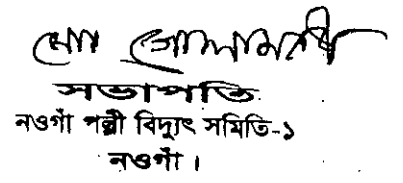 মোঃ গোলাম নবী
সভাপতি
নওগাঁ পল্লী বিদ্যুৎ সমিতি-১
নওগাঁ।